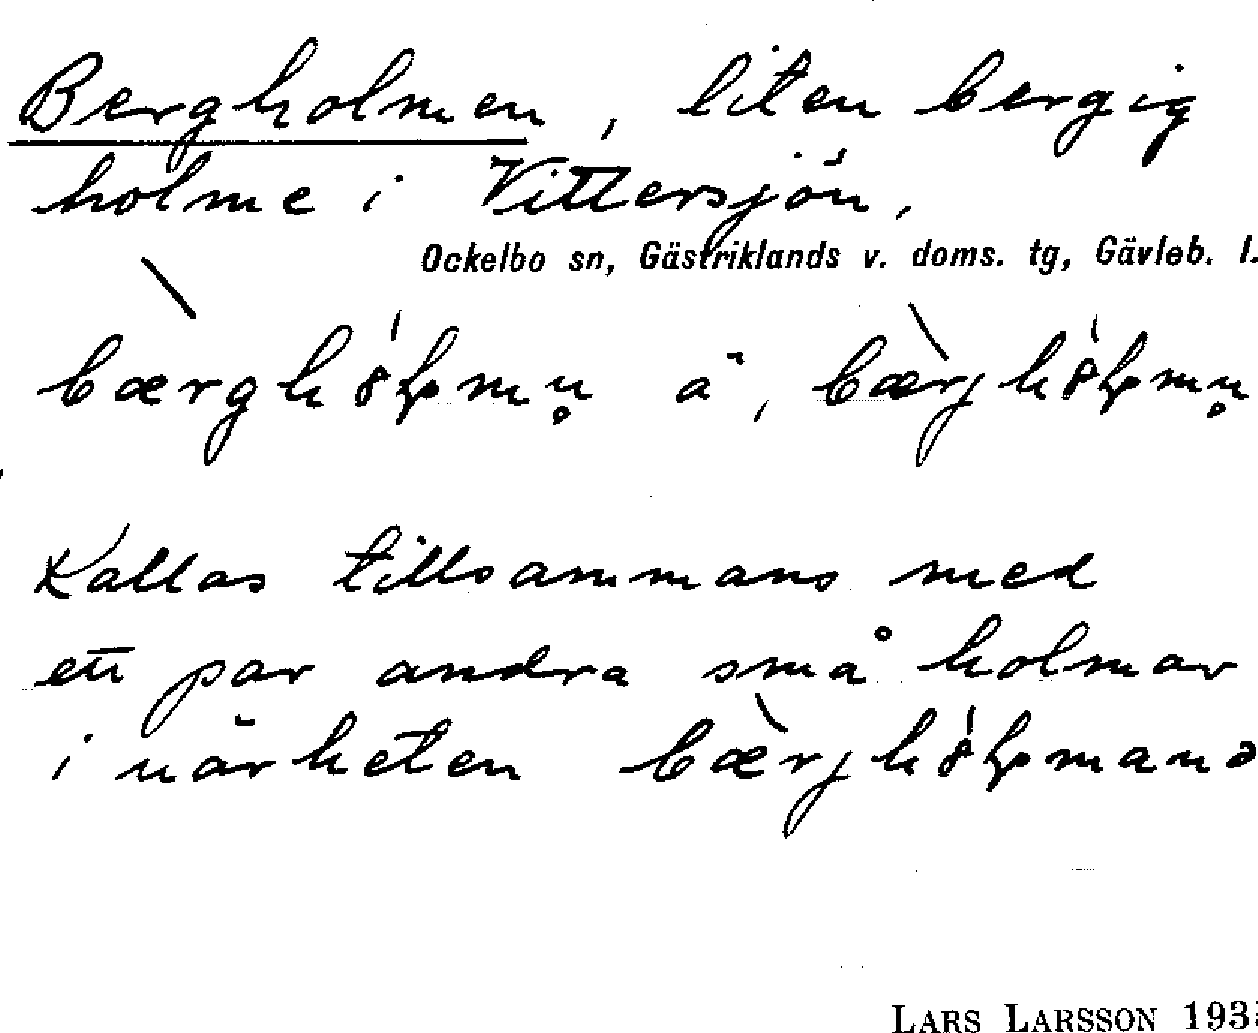 Bergholmen, liten bergig
holme i Vittersjön.
Ockelbo sn, Gästriklands v. doms. tg, Gävleb. l.
Kallas tillsammans med
ett par andra små holmar
i närheten
LARS LARSSON 193